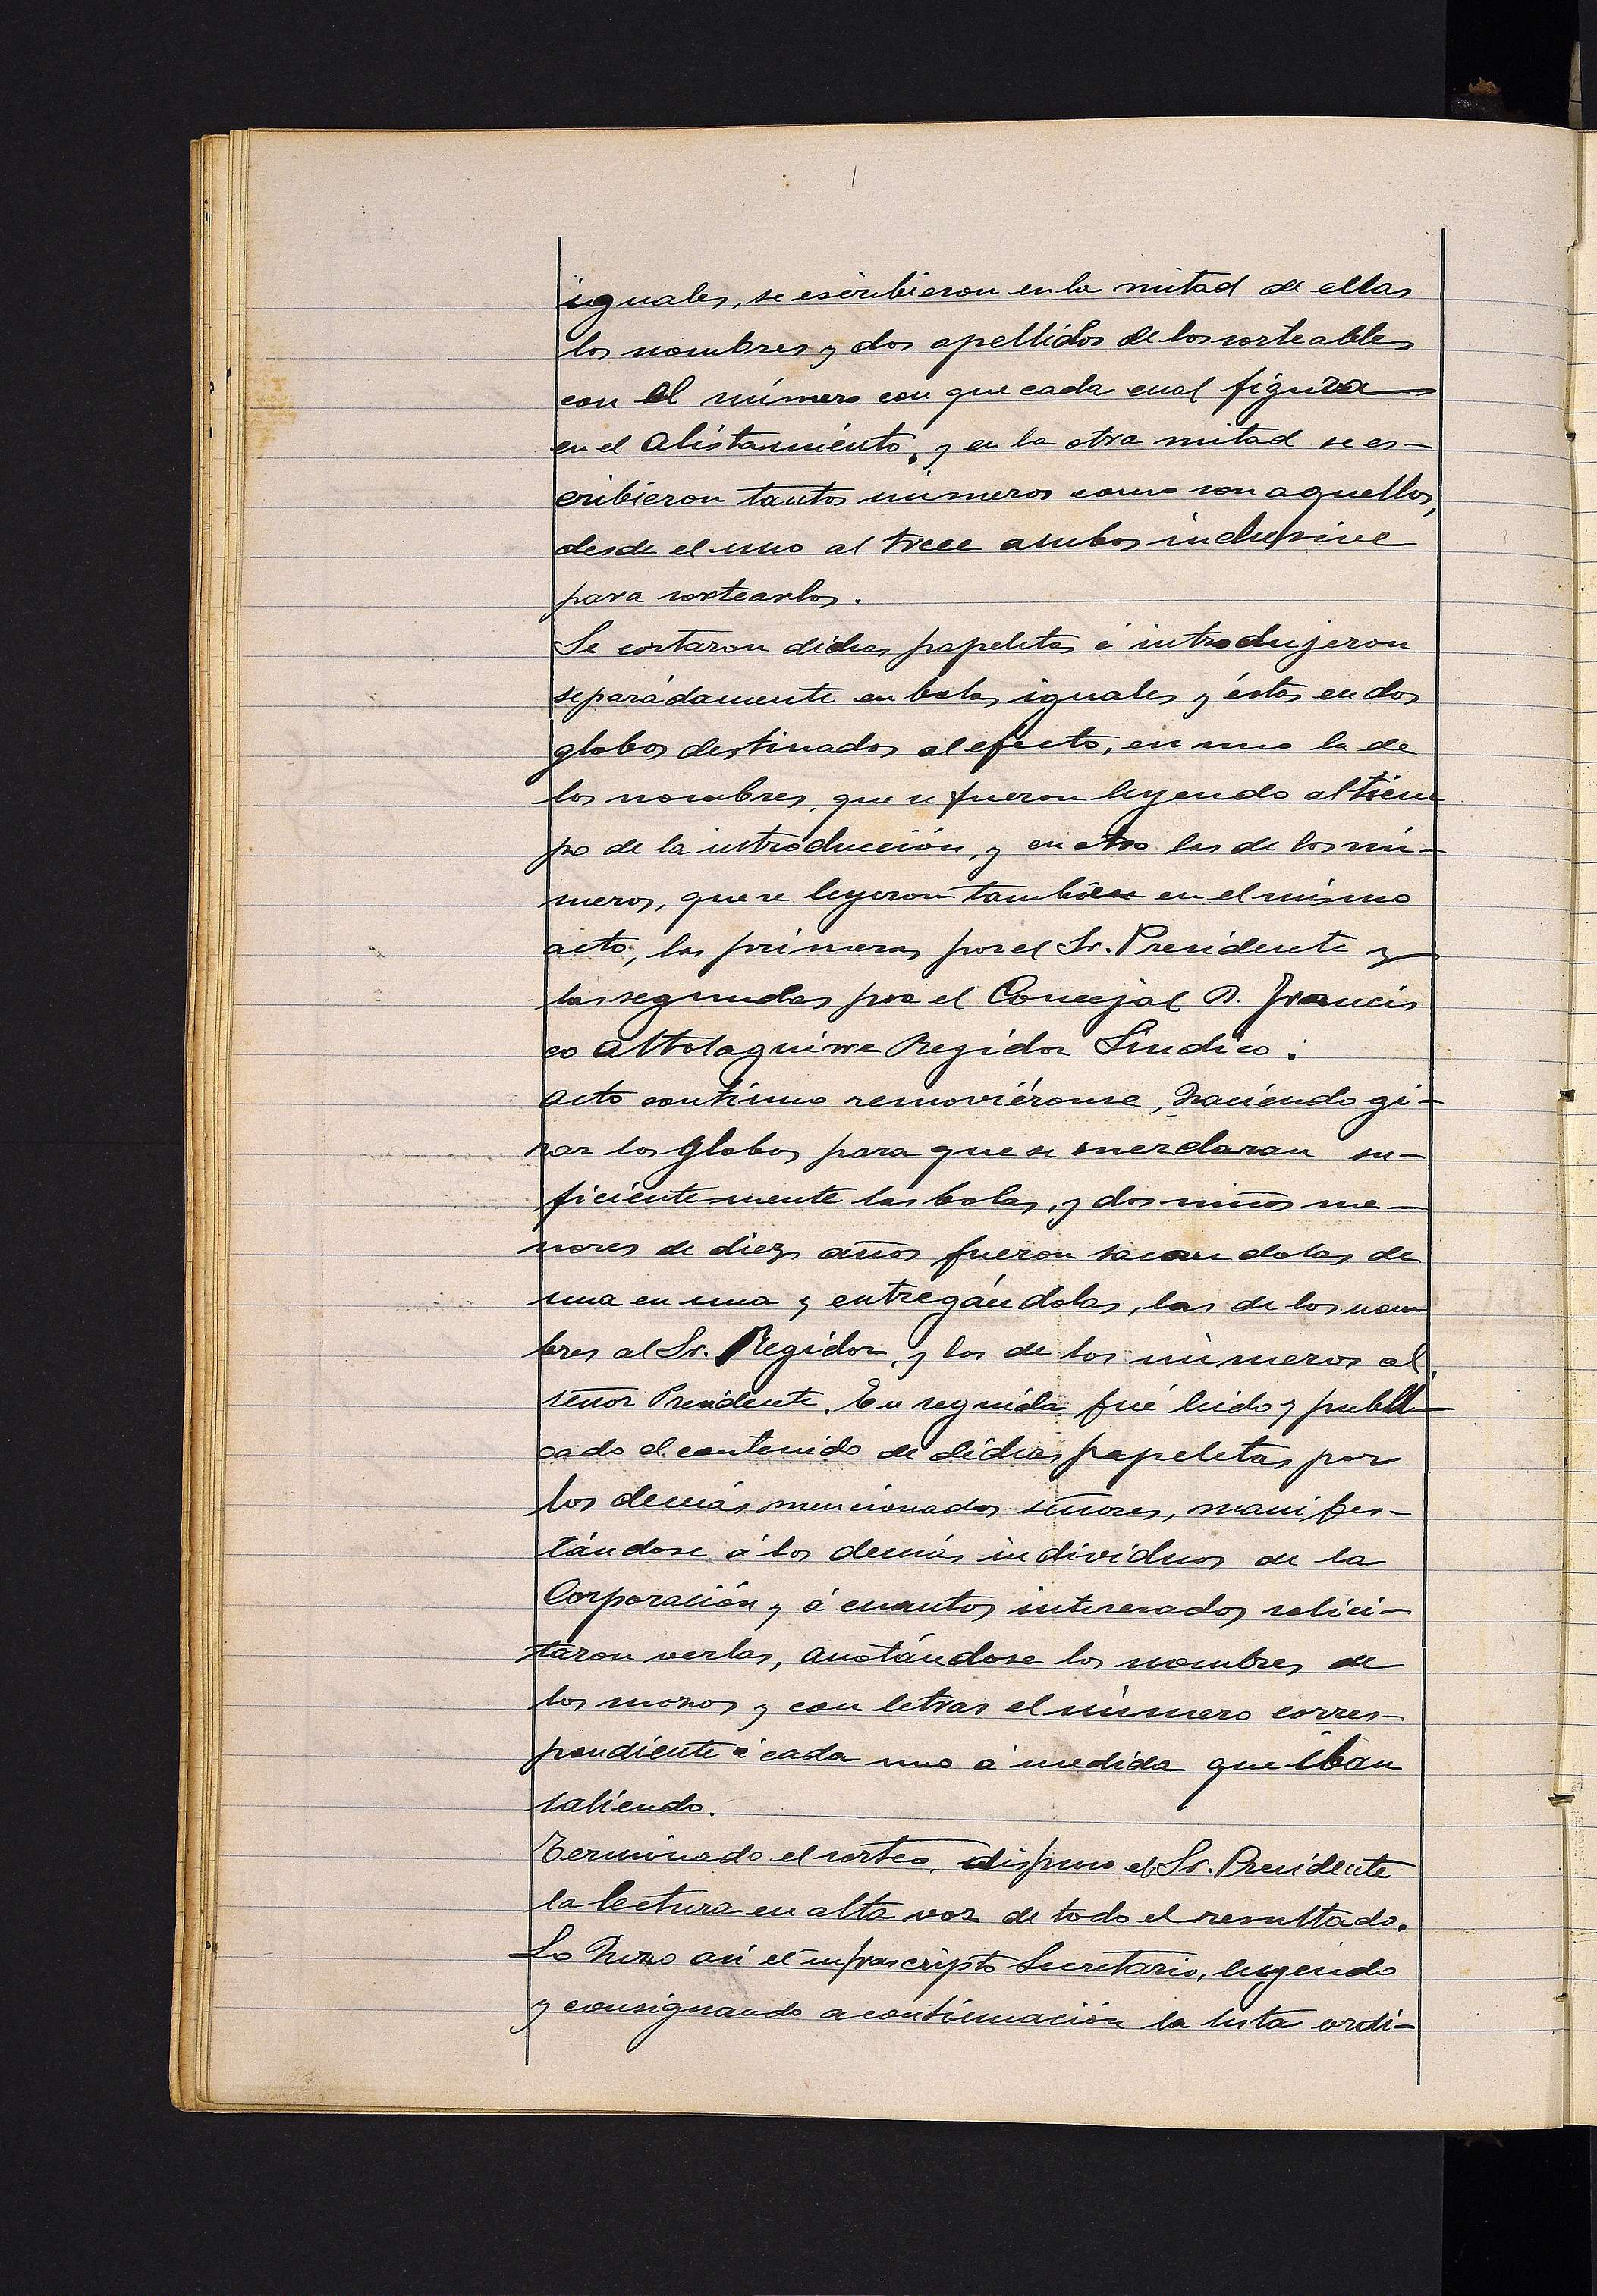 iguales, se escribieron en la mitad de ellas
los nombres y dos apellidos de los sorteables
con el número con que cada cual figura
en el alistamiento, y en la otra mitad se es-
cribieron tantos números como son aquellos,
desde el uno al trece ambos inclusive
para sortearlos.
Se cortaron dichas papeletas é introdujeron
separádamente en bolas iguales y éstas en dos
globos destinados al efecto, en uno la de
los nombres, que se fueron leyendo al tiem
po de la introducción, y en otro las de los nú-
meros, que se leyeron tambien en el mismo
acto, las primeras por el Sr. Presidente y
las segundas por el Concejal D. Francis
co Altolaguirre Regidor Síndico.
Acto contínuo removiéronse, haciendo gi-
rar los globos para que se mezclaran su-
ficientemente las bolas, y dos niños me-
nores de diez años fueron sacandolas de
una en una y entregándolas, las de los nom
bres al Sr. Regidor, y las de los números al
señor Presidente. En seguida fué leido y publi-
cado el contenido de dichas papeletas por
los demás mencionados señores, manifes-
tándose á los demás individuos de la
Corporación y á cuantos interesados solici-
taron verlas, anotándose los nombres de
los mozos y con letras el número corres-
pondiente á cada uno á medida que iban
saliendo.
Terminado el sorteo, dispuso el Sr. Presidente
la lectura en alta voz de todo el resultado.
Lo hizo así el infrascripto Secretario, leyendo
y consignando a continuación la lista ordi-